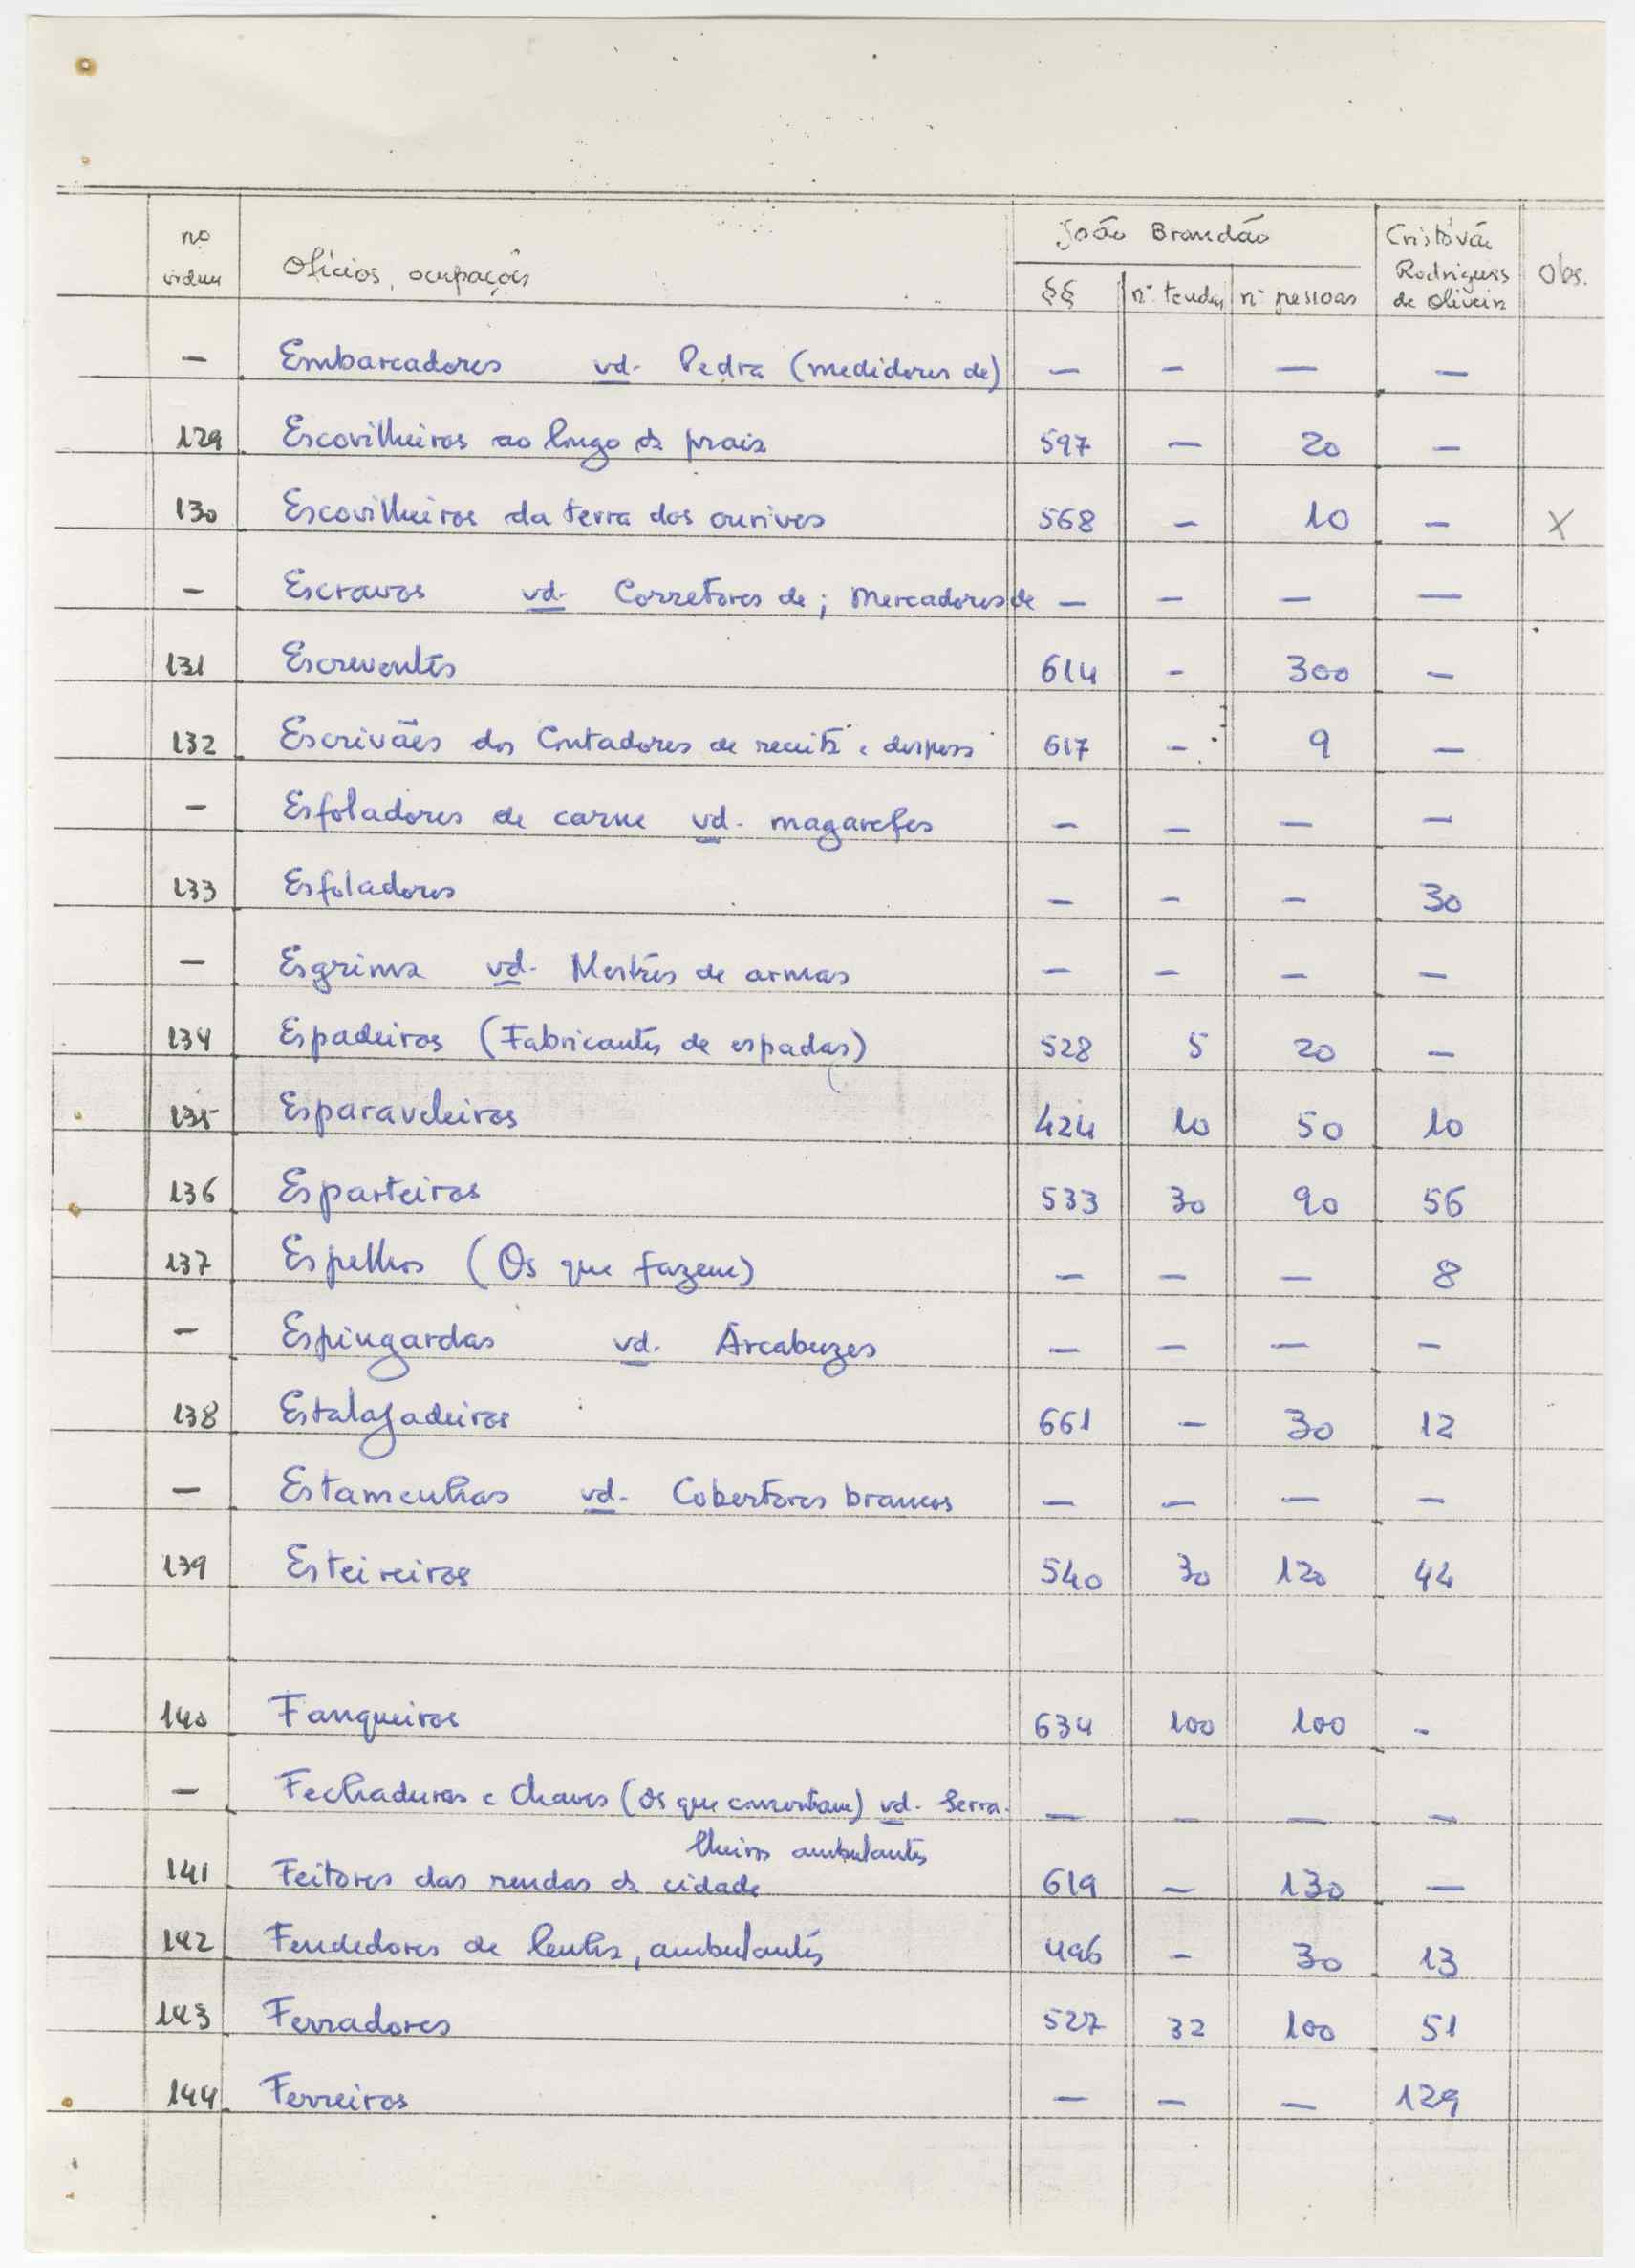 João Brandão
Cristóvão
nº
ordem Ofícios, ocupações §§ nº tendas nº pessoas Rodrigues de Oliveira Obs.
— Embarcadores vd. Pedra (medidores de) — — — —
129 Escovilheiros ao longo da praia 597 — 20 —
130 Escovilheiros da terra dos ourives 568 — 10 — X
— Escravos vd. Corretores de; Mercadores de — — — —
131 Escreventes 614 — 300 —
132 Escrivães dos Contadores de receita e despesa 617 — 9 —
— Esfoladores de carne vd. magarefes — — — —
133 Esfoladores — — — 30
— Esgrima vd. Mestres de armas — — — —
134 Espadeiros (Fabricantes de espadas) 528 5 20 —
135 Esparaveleiros 424 10 50 10
136 Esparteiros 533 30 90 56
137 Espelhos (Os que fazem) — — — 8
— Espingardas vd. Arcabuzes — — — —
138 Estalajadeiros 661 — 30 12
— Estamenhas vd. Cobertores brancos — — — —
139 Esteireiros 540 30 120 44
140 Fanqueiros 634 100 100 -
— Fechaduras e chaves (os que consertam) vd. Serra- — — — —
lheiros ambulantes
141 Feitores das rendas da cidade 619 — 130 —
142 Fendedores de lenha, ambulantes 496 — 30 13
143 Ferradores 527 32 100 51
144 Ferreiros — — — 129